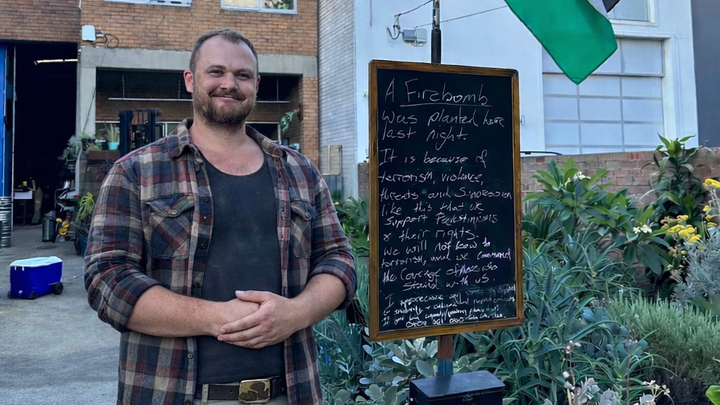 A Firebomb
was planted here
last night.
It is because of
terrorism, violence,
threats and Supression
like this that we
Support Palestinians
& their rights!
We will not kow to
terrorism, and we commend
the Courage of those who
Stand with us.
I appreciate all